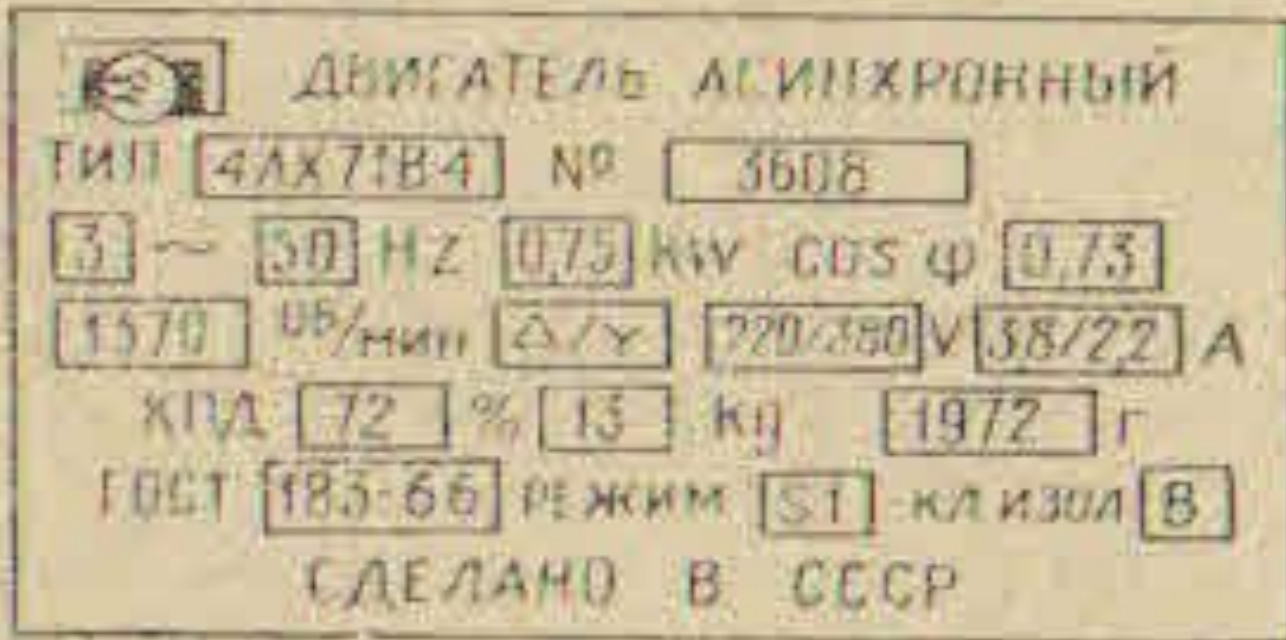 ДВИГАТЕЛЬ АСИНХРОННЫЙ
ТИП 4АХ71В4 № 3608
3 ~ 50 HZ 0,75 kw cos φ 0,73
1370 об/мин Δ/Y 220/380 V 3,8/2,2 A
КПД 72 % 15 Kg 1972 г
ГОСТ 183-66 РЕЖИМ S1 КЛ ИЗОЛ В
СДЕЛАНО В СССР